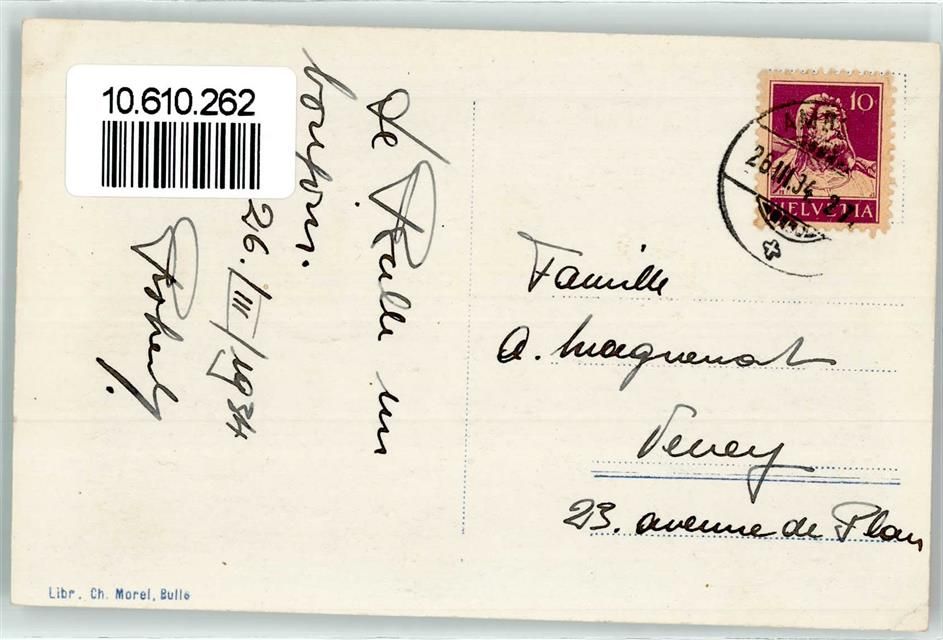 10.610.262
De Bulle un
bonjour.
26./III/1934
Robert.
10
HELVETIA
26.III.34
Famille
A. Magnenat
Vevey
23. avenue de Plan
Libr. Ch. Morel, Bulle